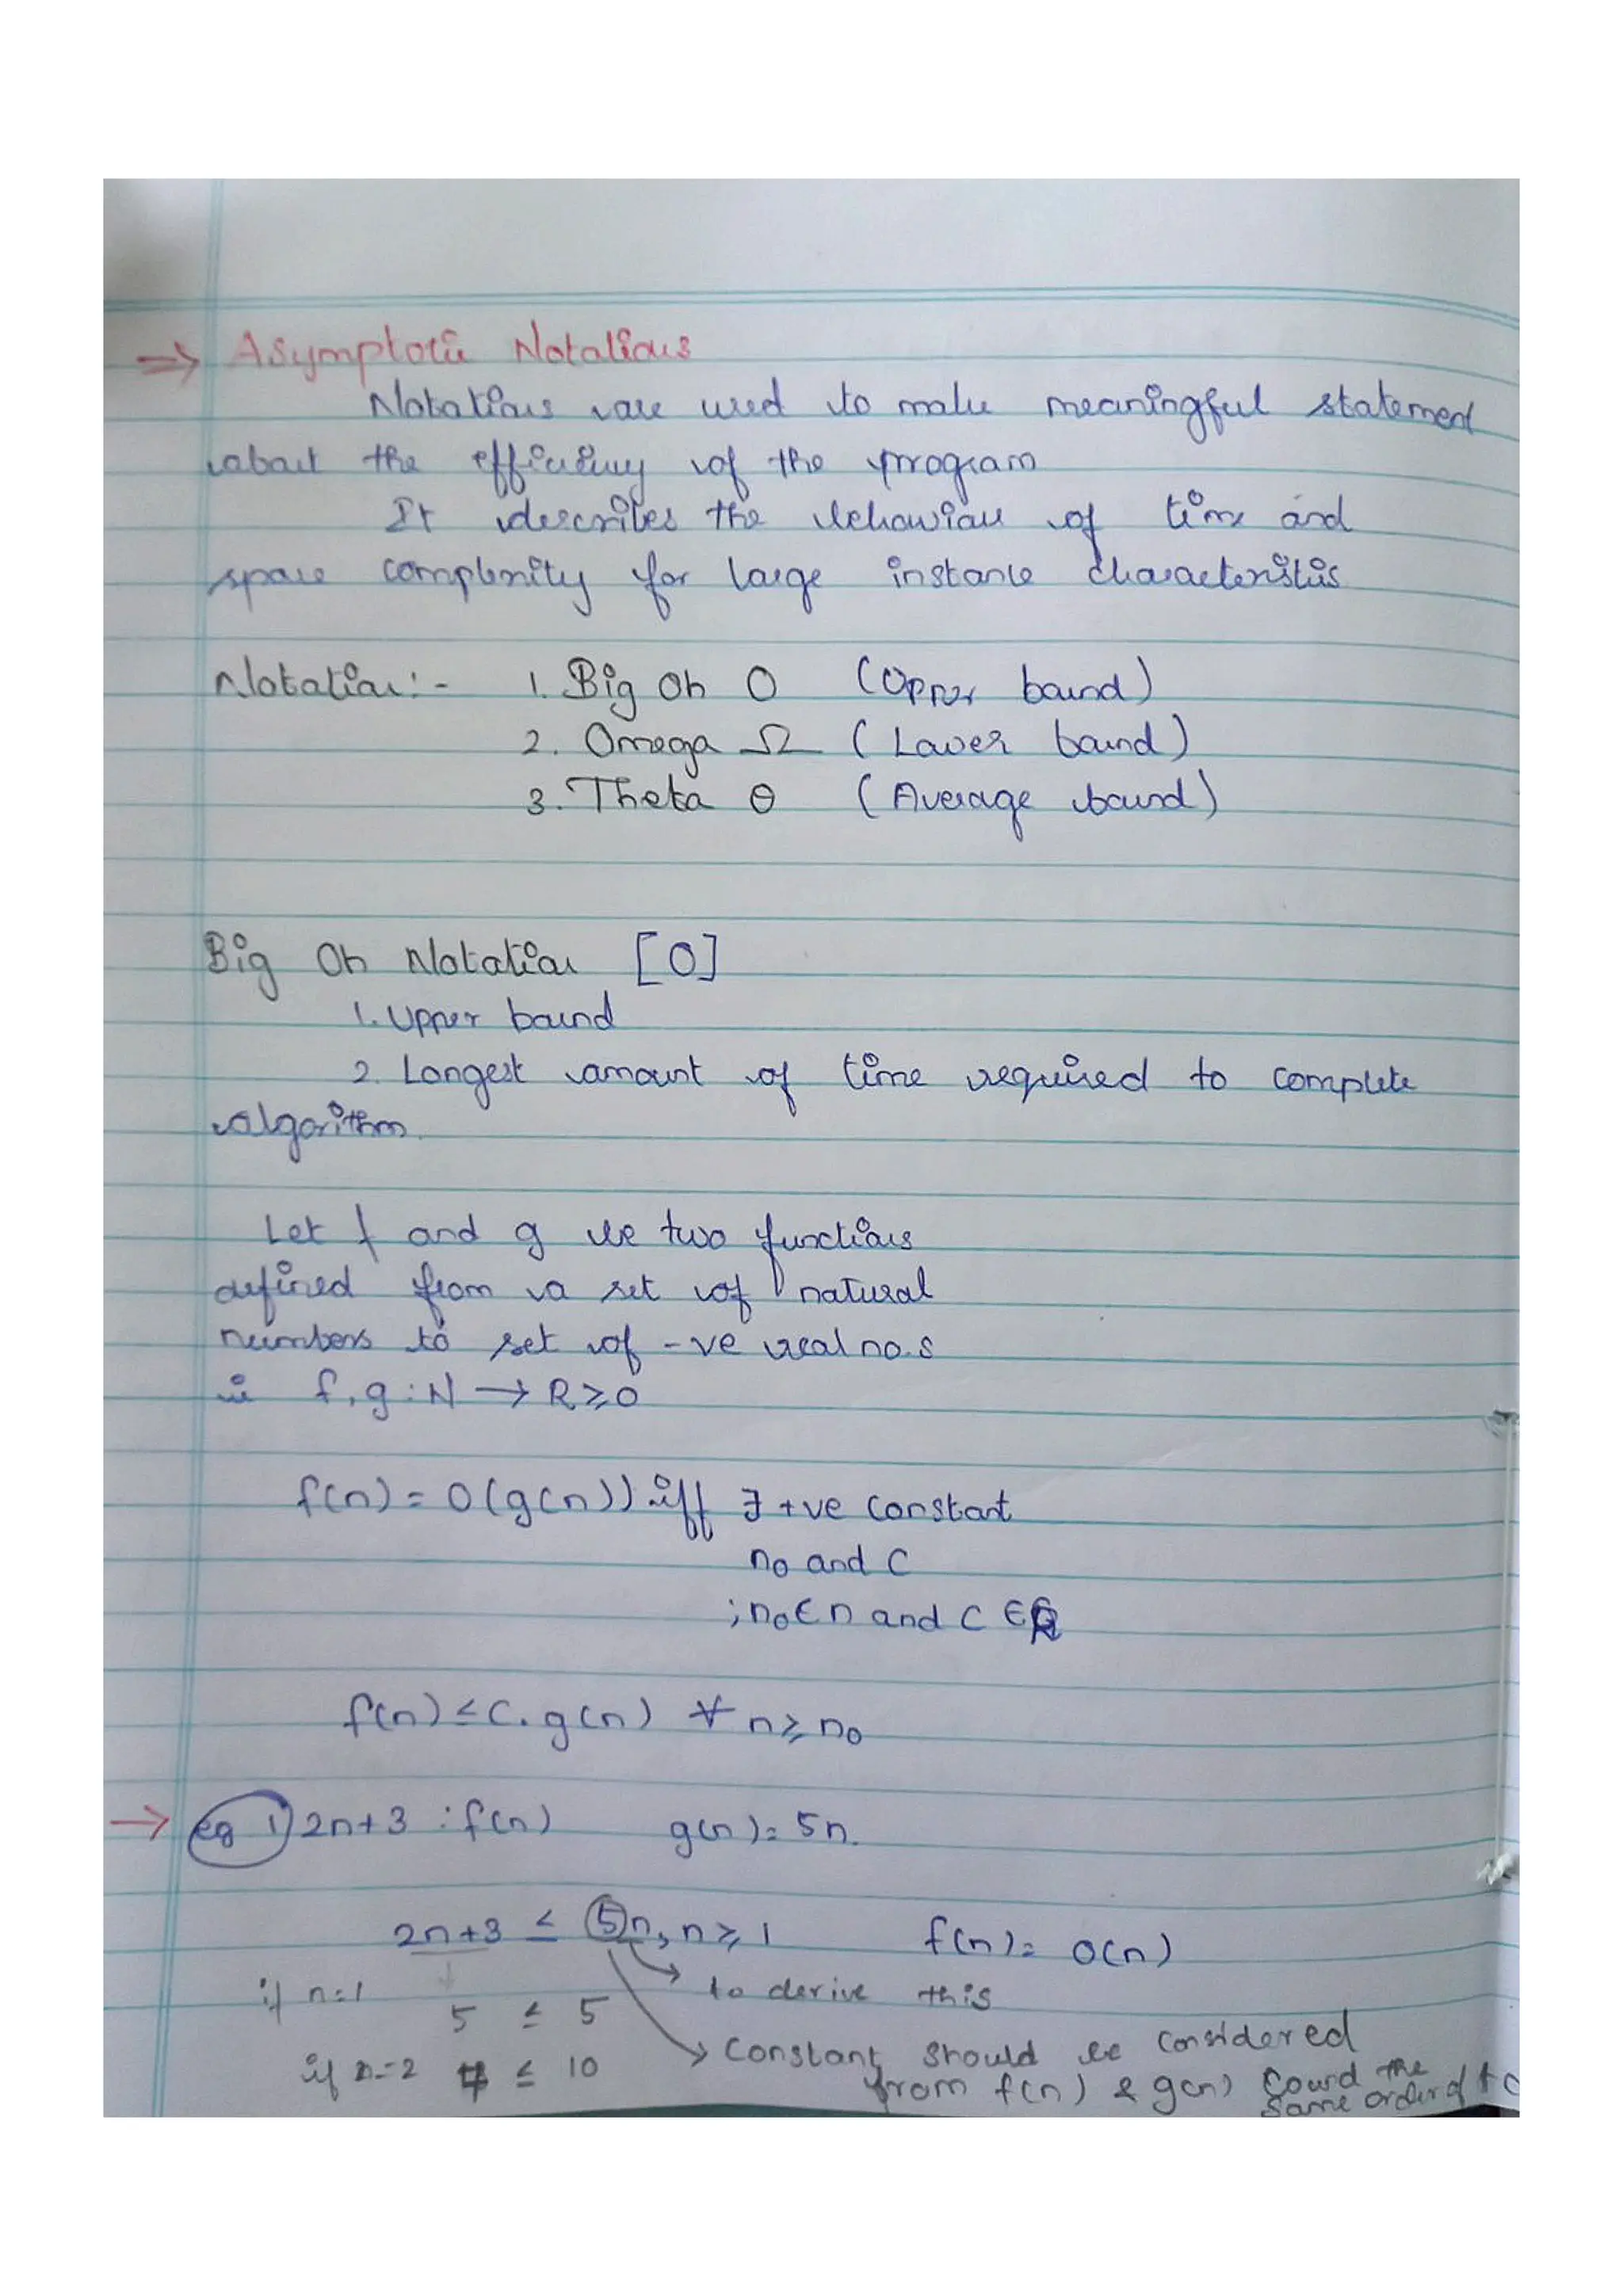 ⇒ Asymptotic Notations
Notations are used to make meaningful statement
about the efficiency of the program
It describes the behaviour of time and
space complexity for large instance characteristics
Notation:- 1. Big Oh O (Upper bound)
2. Omega Ω (Lower bound)
3. Theta θ (Average bound)
Big Oh Notation [O]
1. Upper bound
2. Longest amount of time required to complete
algorithm.
Let f and g be two functions
defined from a set of natural
numbers to set of -ve real no.s
ie f, g : N → R≥0
f(n) = O(g(n)) iff ∃ +ve constant
n₀ and C
; n₀ ∈ n and C ∈ R
f(n) ≤ C. g(n) ∀ n ≥ n₀
→ eg 1) 2n+3 : f(n) g(n) = 5n.
2n+3 ≤ 5n, n ≥ 1 f(n) = O(n)
if n=1 → to derive this
5 ≤ 5
→ Constant should be considered
if n=2 ≤ 10
from f(n) & g(n) the
same order of